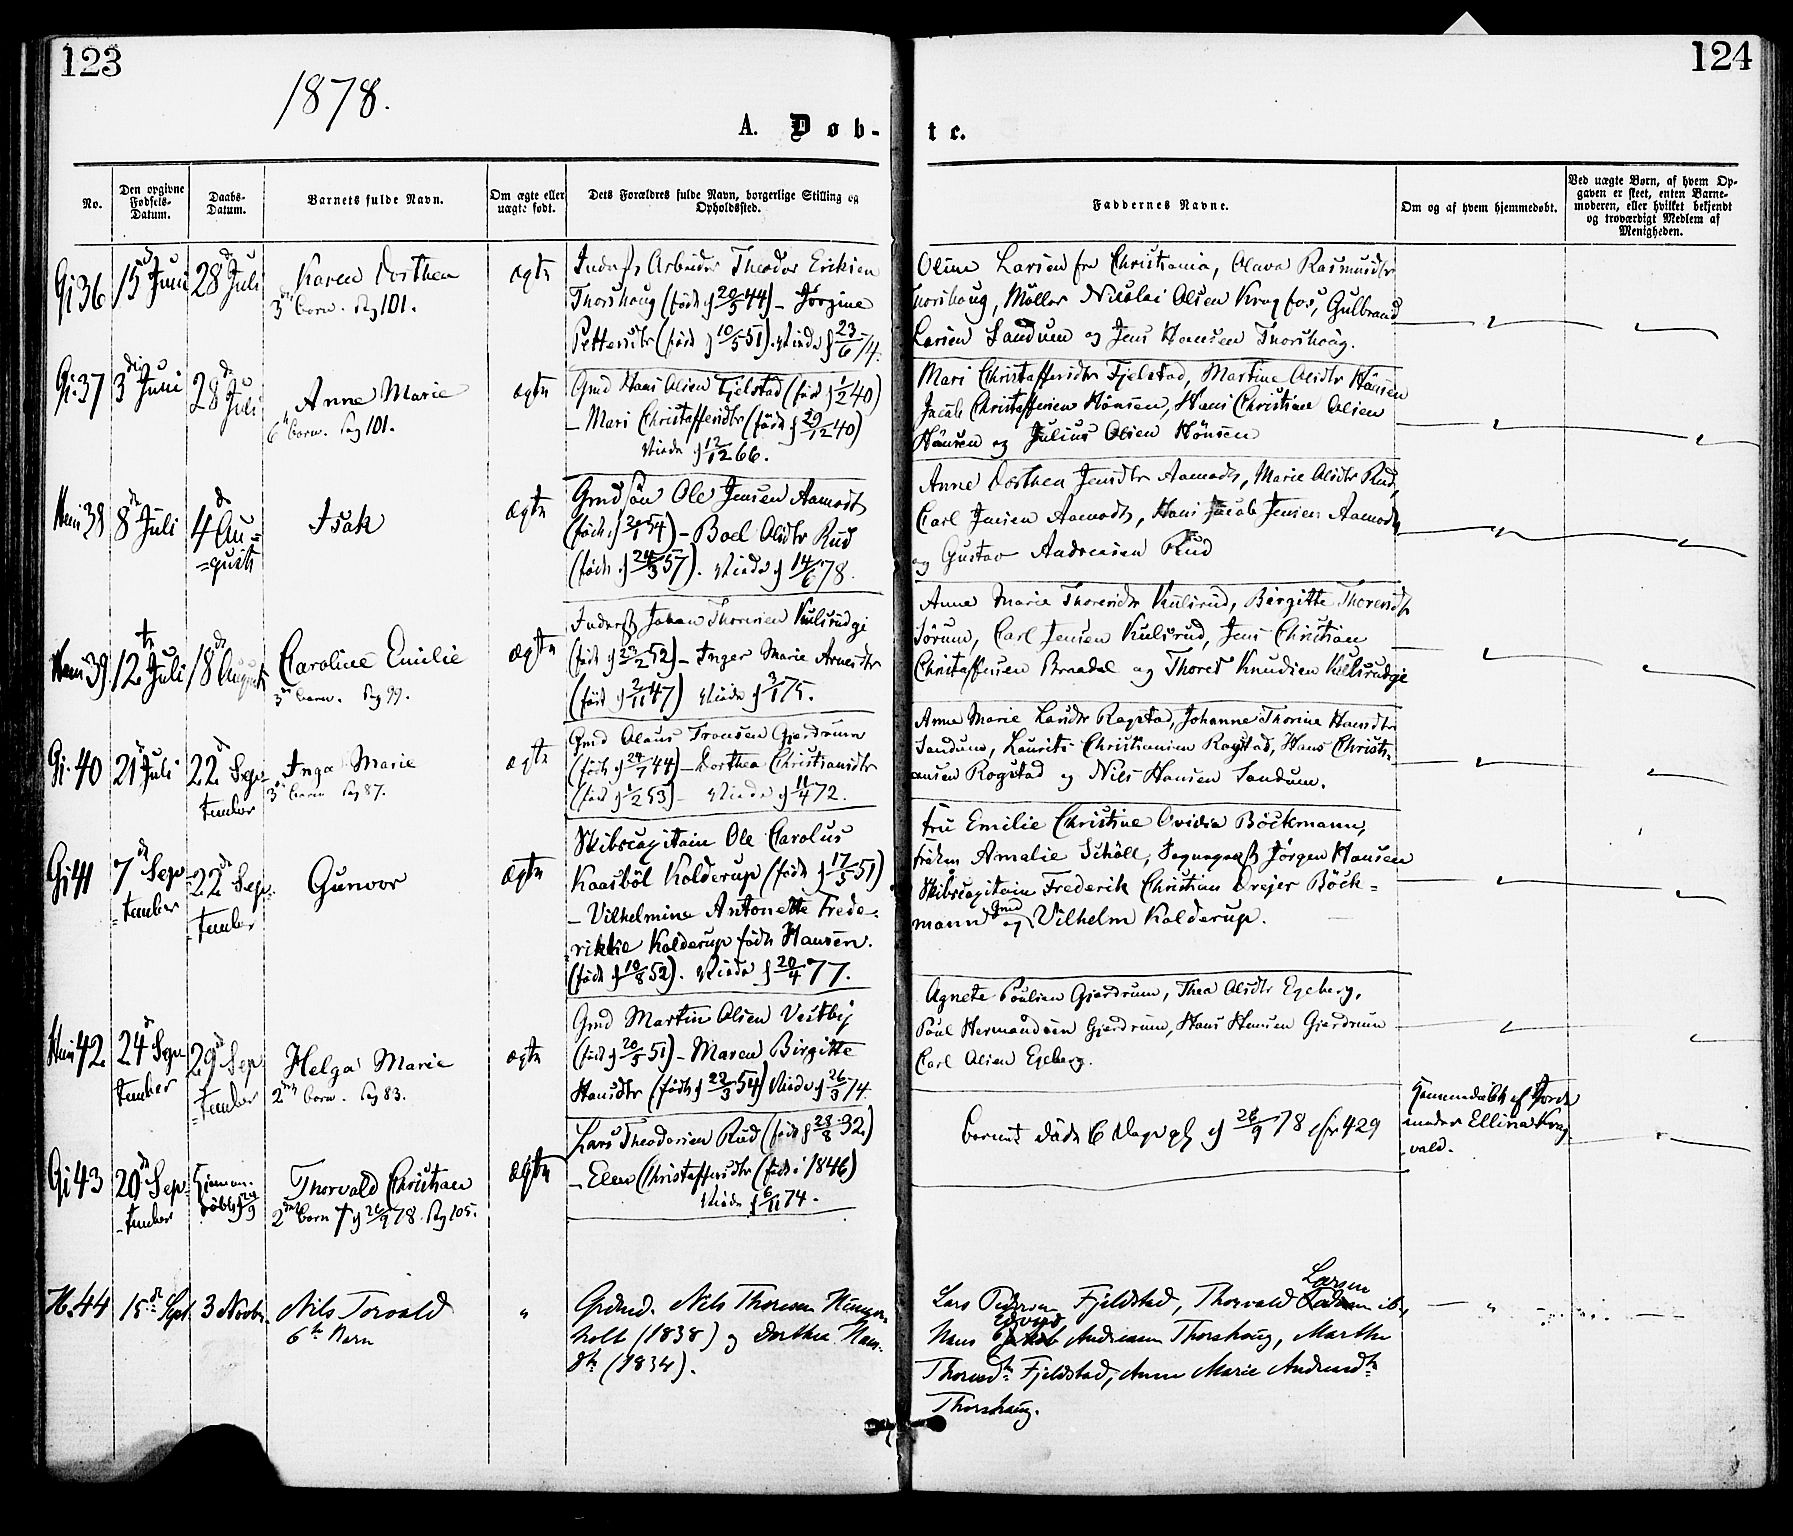 123
124
1878.
A. Døb-
te.
No.
Den opgivne Fødsels-Datum.
Daabs-Datum.
Barnets fulde Navn.
Om ægte eller uægte født.
Dets Forældres fulde Navn, borgerlige Stilling og Opholdssted.
Faddernes Navne.
Om og af hvem hjemmedøbt.
Ved uægte Børn, af hvem Op-
gaven er skeet, enten Barne-
moderen, eller hvilket bekjendt
og troværdigt Medlem af
Menigheden.
Gi 36
15de Juni
28de Juli
Karen Dorthea
3die barn. Pag 101.
ægte
Inderst Arbeider Theodor Eriksen
Thorshaug (født d 20/5 44) – Jørgine
Pettersdtr (født d 10/5 51). Viede d 23/6 74.
Oline Larsen fra Christiania, Olava Rasmusdtr
Thorshaug, Møller Nicolai Olsen Kragfos, Gulbrand
Larsen Sandum og Jens Hansen Thorshaug.
Gi. 37
3die Juni
28de Juli
Anne Marie
6te barn. Pag 101.
ægte
Gmd Hans Olsen Fjelstad (født d 1/2 40)
– Mari Christoffersdtr (født d 29/12 40)
Viede d 12/12 66.
Mari Christoffersdtr Fjelstad, Martine Olsdtr Hønsen
Jacob Christoffersen Hønsen, Hans Christian Olsen
Hønsen og Julius Olsen Hønsen
38
8de Juli
4de Au=
=gust
Isak
ægte
Grdsøn Ole Jensen Aamodt
(født d 20/1 54) – Boel Olsdtr Rud
(født d 24/3 57). Viede d 14/6 78.
Anne Dorthea Jensdtr Aamodt, Marie Olsdtr Rud,
Carl Jensen Aamodt, Hans Jacob Jensen Aamodt
og Gustav Andreasen Rud
39
12te Juli
18de August
Caroline Emilie
3die barn. Pag 99.
ægte
Inderst Johan Thoresen Kulsrudgj
(født d 23/2 52) – Inger Marie Arnesdtr
(født d 2/11 47) Viede d 3/1 75.
Anne Marie Thoresdtr Kulsrud, Birgitte Thoresdtr
Sørum, Carl Jensen Kulsrud, Jens Christian
Christoffersen Braadal og Thored Knudsen Kulsrudgj
Gi. 40
21de Juli
22de Sep-
tember
Inga Marie
3die barn Pag 87.
ægte
Gmd Olaus Fransen Gjerdrum
(født d 24/7 44) – Dorthea Christiansdtr
(født d 1/2 53) – Viede d 11/4 72.
Anne Marie Larsdtr Rogstad, Johanne Thorine Hansdtr
Sandum, Laurits Christiansen Rogstad, Hans Christi-
ansen Rogstad og Nils Hansen Sandum.
Gi 41
7de Sep-
-tember
22de Sep-
-tember
Gunvor
ægte
Skibscapitain Ole Carolus
Kaasbøl Kolderup (født d 17/5 51)
– Vilhelmine Antonette Frede-
rikke Kolderup født Hansen.
(født d 10/8 52). Viede d 20/4 77.
Fru Emilie Christine Ovidia Böckmann,
Frøken Amalie Schøll, Sogneprest Jørgen Hansen
Skibscapitain Frederik Christian Drejer Böck=
mann og Vilhelm Kolderup.
42
24de Sep-
tember
29de Sep-
-tember
Helga Marie
2det barn. Pag 83.
ægte
Gmd Martin Olsen Vestby
(født d 20/5 51) – Maren Birgitte
Hansdtr (født d 22/3 54) Viede d 26/3 74.
Agnete Paulsen Gjerdrum, Thea Olsdtr Egeberg,
Paul Hermandsen Gjerdrum, Hans Hansen Gjerdrum
Carl Olsen Egeberg.
Gi 43
20de Sep-
-tember
Hjemme-
døbt d 20/9
Thorvald Christian
2det barn † d 26/9 78. Pag 105.
ægte
Lars Theodorsen Rud (født d 28/8 32)
– Elen Christoffersdtr (født i 1846)
Viede d 6/11 74.
Barnet døde 6 Dage gl d 26/9 78 cfr 429
Hjemmedøbt af Jorde
moder Ellina Krag
vald.
H. 44
15de Sept.
3 Novbr.
Nils Torvald
6te Barn
"
Grdmd. Nils Thoresen Hunger
holt (1838) og Dorthea Hans-
dtr (1834).
Lars Pedersen Fjeldstad, Thorvald Larsen ib.,
Hans Edvard Andreasen Thorshaug, Marthe
Thoresdtr Fjeldstad, Anne Marie Andreasdtr
Thorshaug.